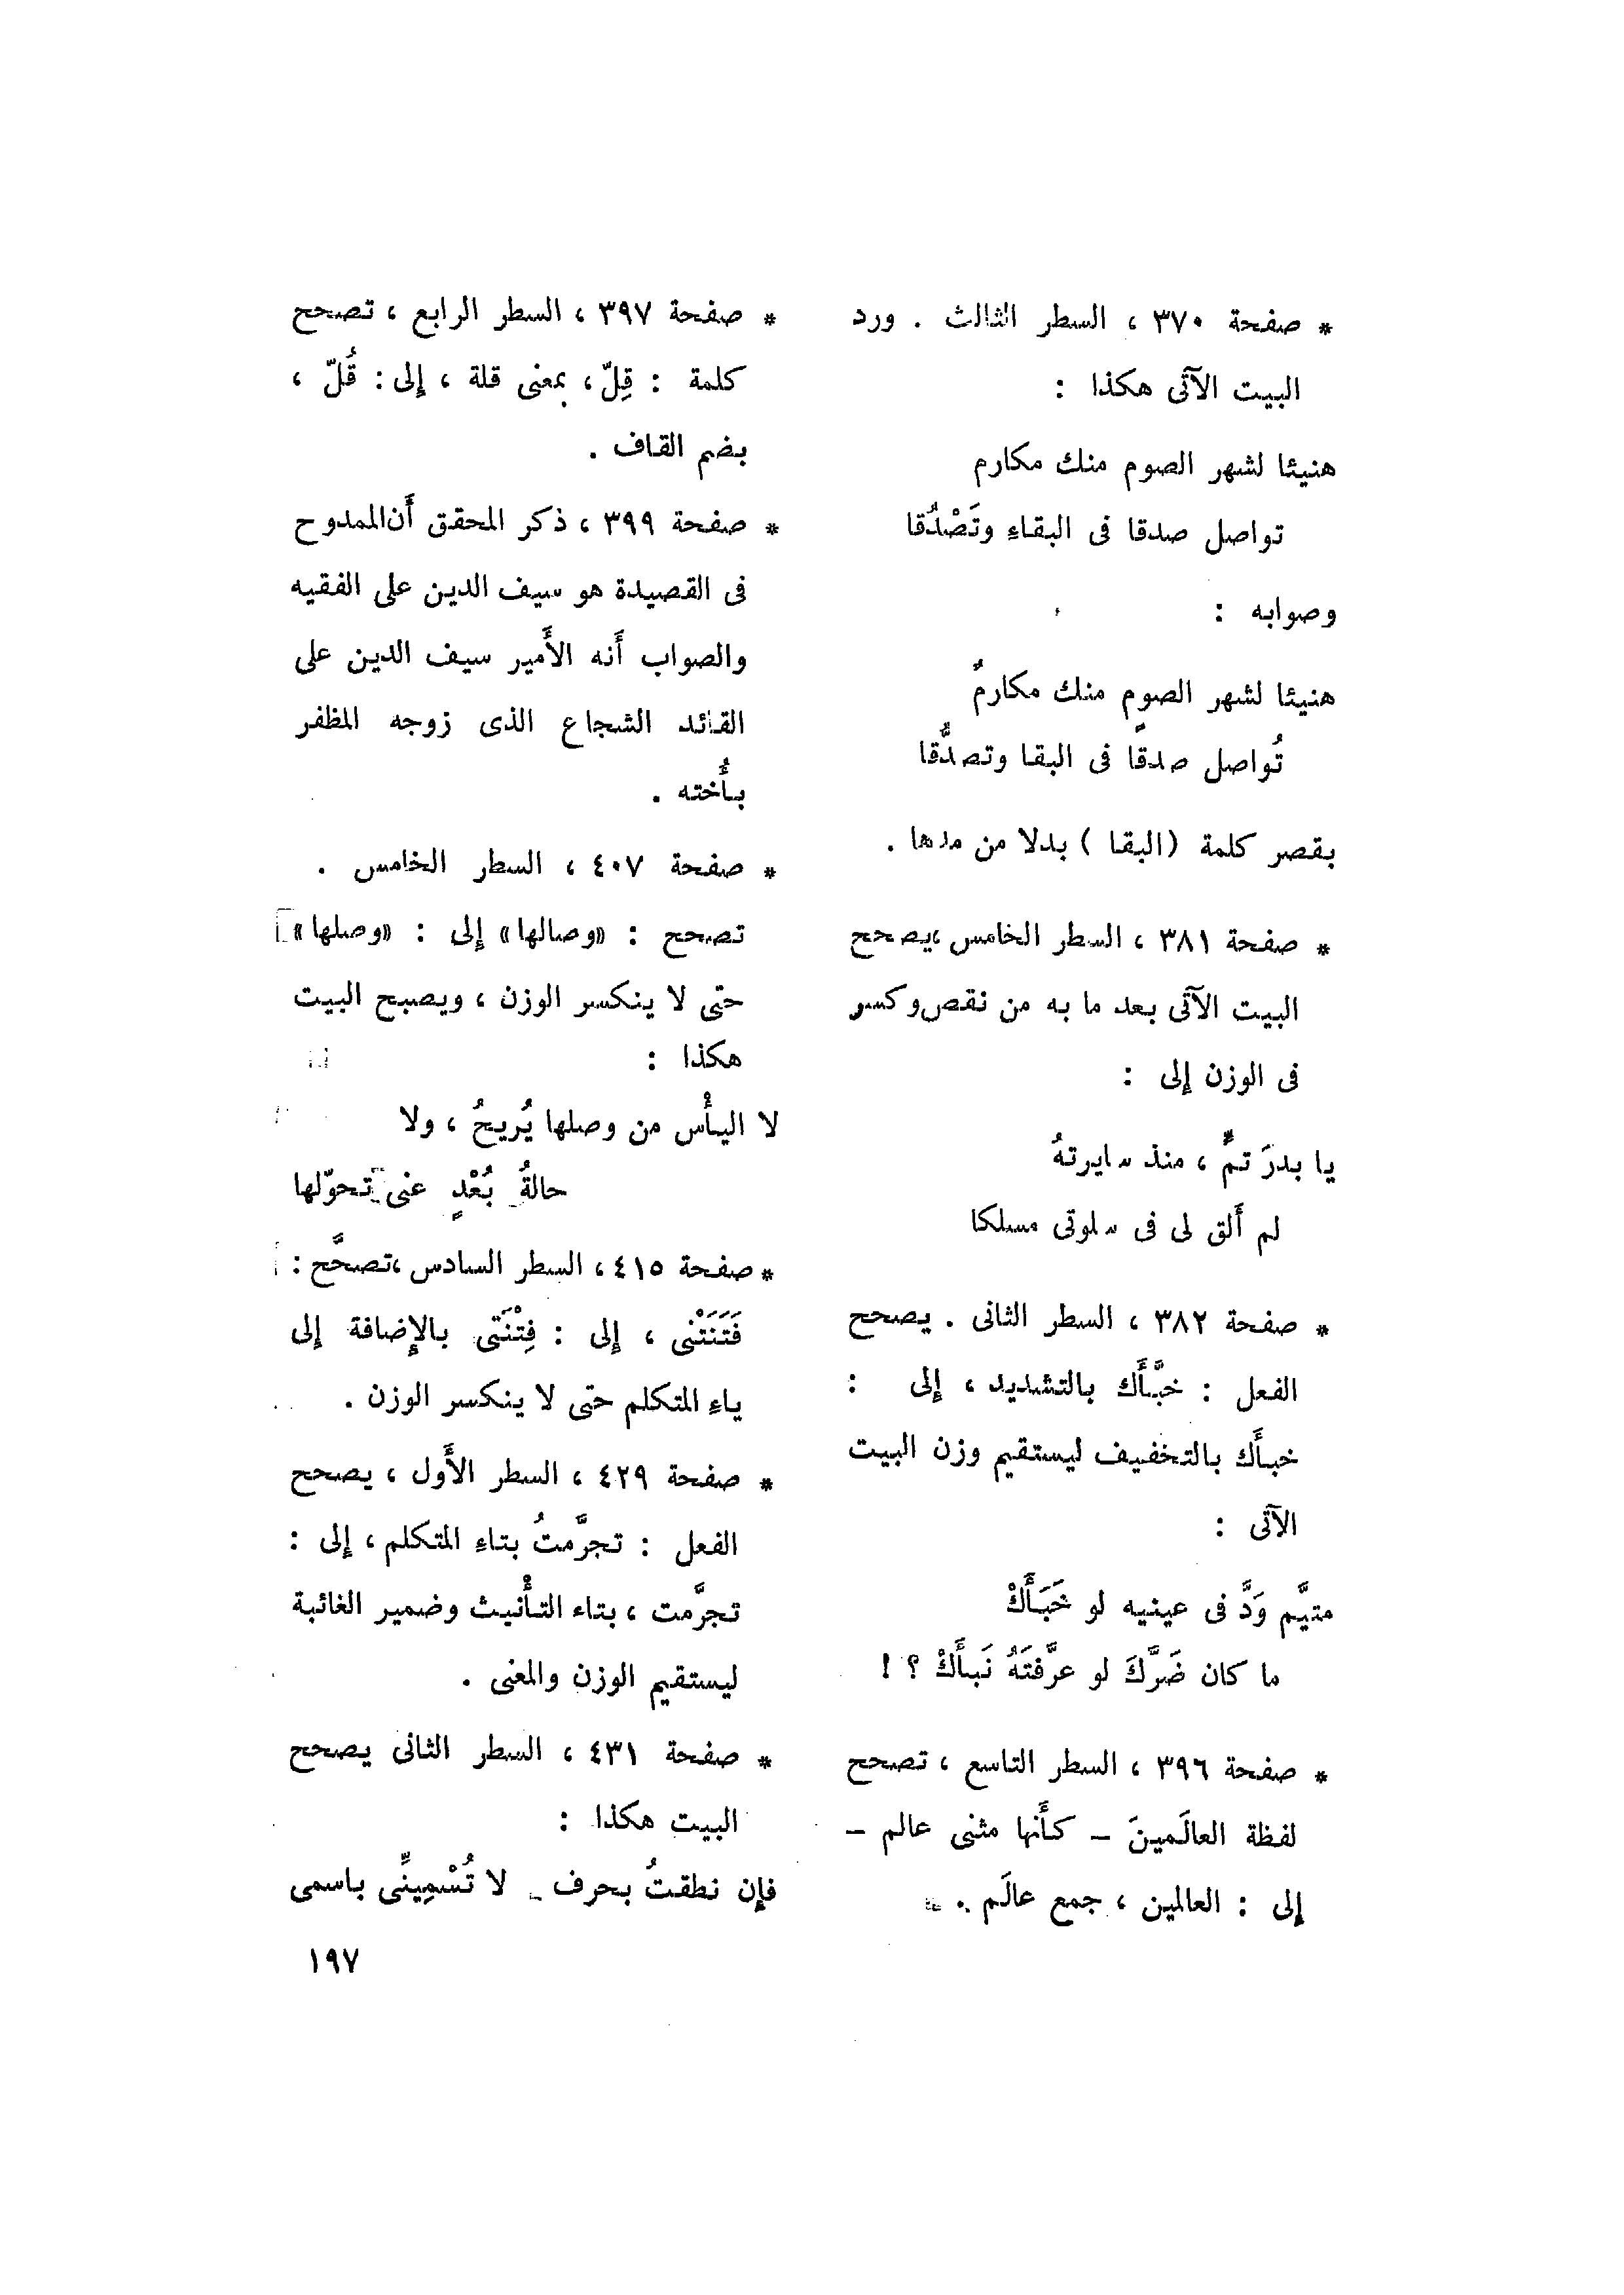 * صفحة ٣٧٠ ، السطر الثالث . ورد
البيت الآتى هكذا :
هنيئا لشهر الصوم منك مكارم
تواصل صدقا فى البقاء وتَصْدُقا
وصوابه :
هنيئا لشهر الصومِ منك مكارمٌ
تُواصل صدقًا فى البقا وتصدُّقا
بقصر كلمة (البقا ) بدلا من مدها .
* صفحة ٣٨١ ، السطر الخامس ،يصحح
البيت الآتى بعد ما به من نقص وكسر
فى الوزن إلى :
يا بدرَ تمٍّ ، منذ سايرتهُ
لم أَلق لى فى سلوتى مسلكا
* صفحة ٣٨٢ ، السطر الثانى . يصحح
الفعل : خبَّأَك بالتشديد ، إلى :
خبأَك بالتخفيف ليستقيم وزن البيت
الآتى :
متيَّم وَدَّ فى عينيه لو خَبَأَكْ
ما كان ضَرَّكَ لو عرَّفتَهُ نَبأَكْ ؟ !
* صفحة ٣٩٦ ، السطر التاسع ، تصحح
لفظة العالَمينَ – كأَنها مثنى عالم –
إلى : العالمين ، جمع عالَم .
* صفحة ٣٩٧ ، السطر الرابع ، تصحح
كلمة : قِلّ ، بمعنى قلة ، إلى : قُلّ ،
بضم القاف .
* صفحة ٣٩٩ ، ذكر المحقق أَن الممدوح
فى القصيدة هو سيف الدين على الفقيه
والصواب أَنه الأَمير سيف الدين على
القائد الشجاع الذى زوجه المظفر
بأُخته .
* صفحة ٤٠٧ ، السطر الخامس .
تصحح : «وصالها» إلى : «وصلها»
حتى لا ينكسر الوزن ، ويصبح البيت
هكذا :
لا اليأْس من وصلها يُريحُ ، ولا
حالةُ بُعْدٍ عنى تحوّلها
* صفحة ٤١٥ ، السطر السادس ،تصحَّح :
فَتَنَتْنى ، إلى : فِتْنَتى بالإِضافة إلى
ياءِ المتكلم حتى لا ينكسر الوزن .
* صفحة ٤٢٩ ، السطر الأَول ، يصحح
الفعل : تجرَّمتُ بتاءِ المتكلم ، إلى :
تجرَّمت ، بتاء التأْنيث وضمير الغائبة
ليستقيم الوزن والمعنى .
* صفحة ٤٣١ ، السطر الثانى يصحح
البيت هكذا :
فإِن نطقتُ بحرف لا تُسْمِيِنِّى باسمى
١٩٧